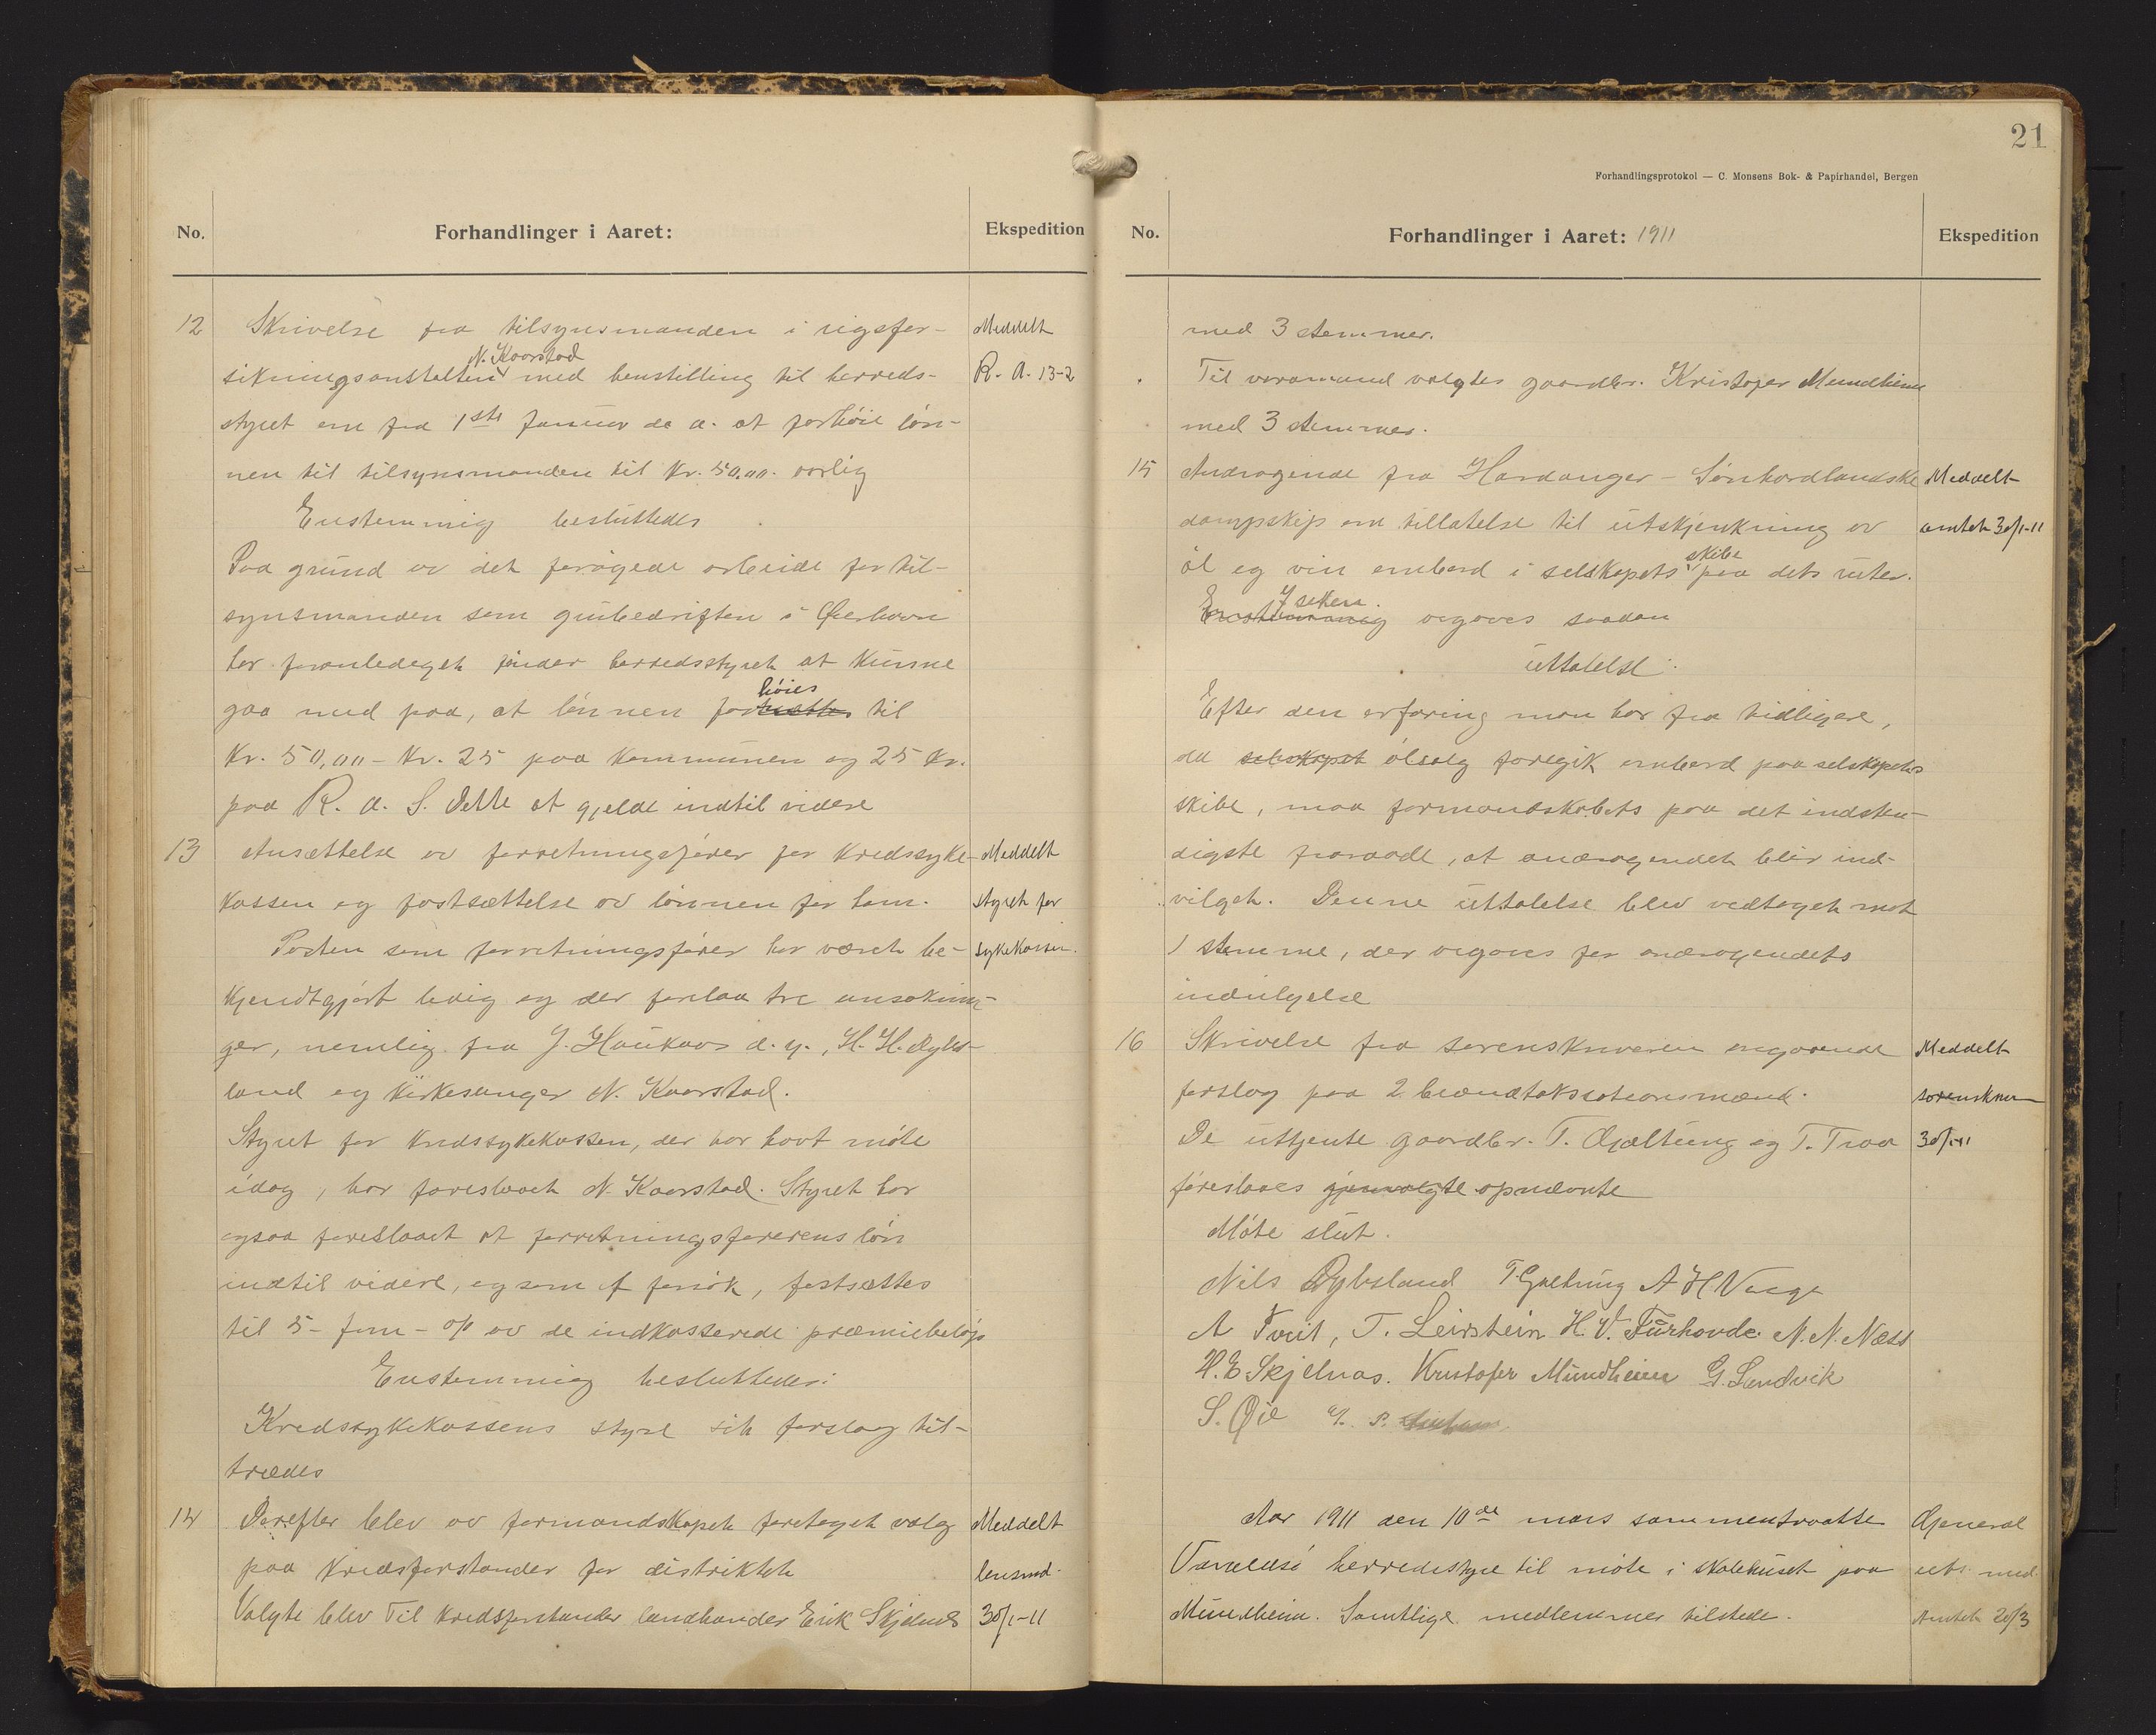 No.
Forhandlinger i Aaret:
Ekspedition
12 Skrivelse fra tilsynsmanden i rigsfor-
sikringsanstalten N. Kaarstad med henstilling til herreds-
styret om fra 1ste Januar d. a. at forhöie løn-
nen til tilsynsmanden til Kr. 50,00 aarlig
Enstemmig besluttedes
Paa grund av det forøgede arbeide for til-
synsmanden som grubedriften i Ølverhavn
har foranlediget finder herredsstyret at kunne
gaa med paa, at lønnen forhöies til
Kr. 50,00 - Kr. 25 paa kommunen og 25 Kr.
paa R. A. S. Dette at gjelde indtil videre
Meddelt
R. A. 13-2
13 Ansættelse av forretningsfører for kredssyke-
kassen og fastsættelse av lønnen for ham.
Posten som forretningsfører har været be-
kjendtgjørt ledig og der forelaa tre ansøknin-
ger, nemlig fra J. Haukaas d. y., H. H. Dybs-
land og kirkesanger N. Kaarstad.
Styret for kredssykekassen, der har havt møte
idag, har foreslaaet N. Kaarstad. Styret har
ogsaa foreslaaet at forretningsførerens løn
indtil videre, og som et forsøk, fastsættes
til 5 - fem - o/o av de indkasserede præmiebeløp
Enstemmig besluttedes:
Kredssykekassens styre sit forslag til-
trædes
Meddelt
styret for
sykekassen.
14 Derefter blev av formandskapet foretaget valg
paa kredsforstander for distriktet
Valgte blev Til kredsforstander landhandler Erik Skjelnes
Meddelt
lensmd.
30/1-11
21
Forhandlingsprotokol — C. Monsens Bok- & Papirhandel, Bergen
No.
Forhandlinger i Aaret: 1911
Ekspedition
med 3 stemmer.
Til varamand valgtes gaardbr. Kristofer Mundheim
med 3 stemmer.
15 Andragende fra Hardanger - Sønhordlandske
dampskip om tillatelse til utskjenkning av
øl og vin ombord i selskapets skibe paa dets ruter.
Enstemmig I saken avgaves saadan
uttalelse:
Efter den erfaring man har fra tidligere,
da selskapet ølsalg foregik ombord paa selskapets
skibe, maa formandskabets paa det indsten-
digste fraraade, at andragendet blir ind-
vilget. Denne uttalelse blev vedtaget mot
1 stemme, der avgaves for andragendets
indvilgelse
Meddelt
amtet 30/1-11
16 Skrivelse fra sorenskriveren angaaende
forslag paa 2 brandtakstationsmænd.
De uttjente gaardbr. T. Gjæltung og T. Traa
foreslaaes gjenvalgte opnævnte
Møte slut.
Meddelt
sorenskriv
30/1-11
Nils Dybsland T. Gjeltung A H Vaage
A Tveit, T. Leirstein H. V. Furhovde. N. N. Næss
H. E Skjelnas. Kristofer Mundheim G. Sandvik
S. Øie
Aar 1911 den 10de mars sammentraatte
Varaldsö herredsstyre til møte i skolehuset paa
Mundheim. Samtlige medlemmer tilstede.
General
uts. med
Amtet 20/3